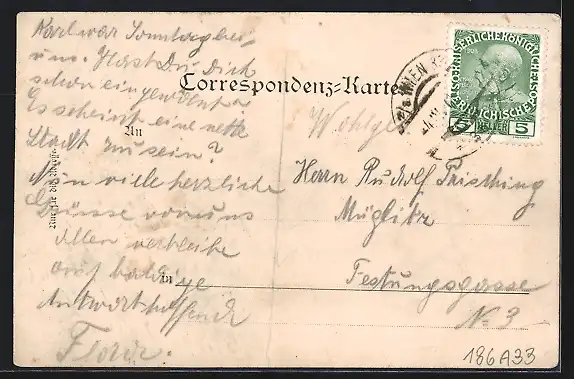 Karl war Sonntag bei
uns. Hast Du Dich
schon eingewöhnt?
Es scheint eine nette
Stadt zu sein?
Nun viele herzliche
Grüsse von uns
allen verbleibe
auf baldige
Antwort hoffend
Correspondenz-Karte
An
in
Wohlge
Herrn Rudolf
Müglitz
Festungsgasse
No 3
186A33
WIEN
5 HELLER 5